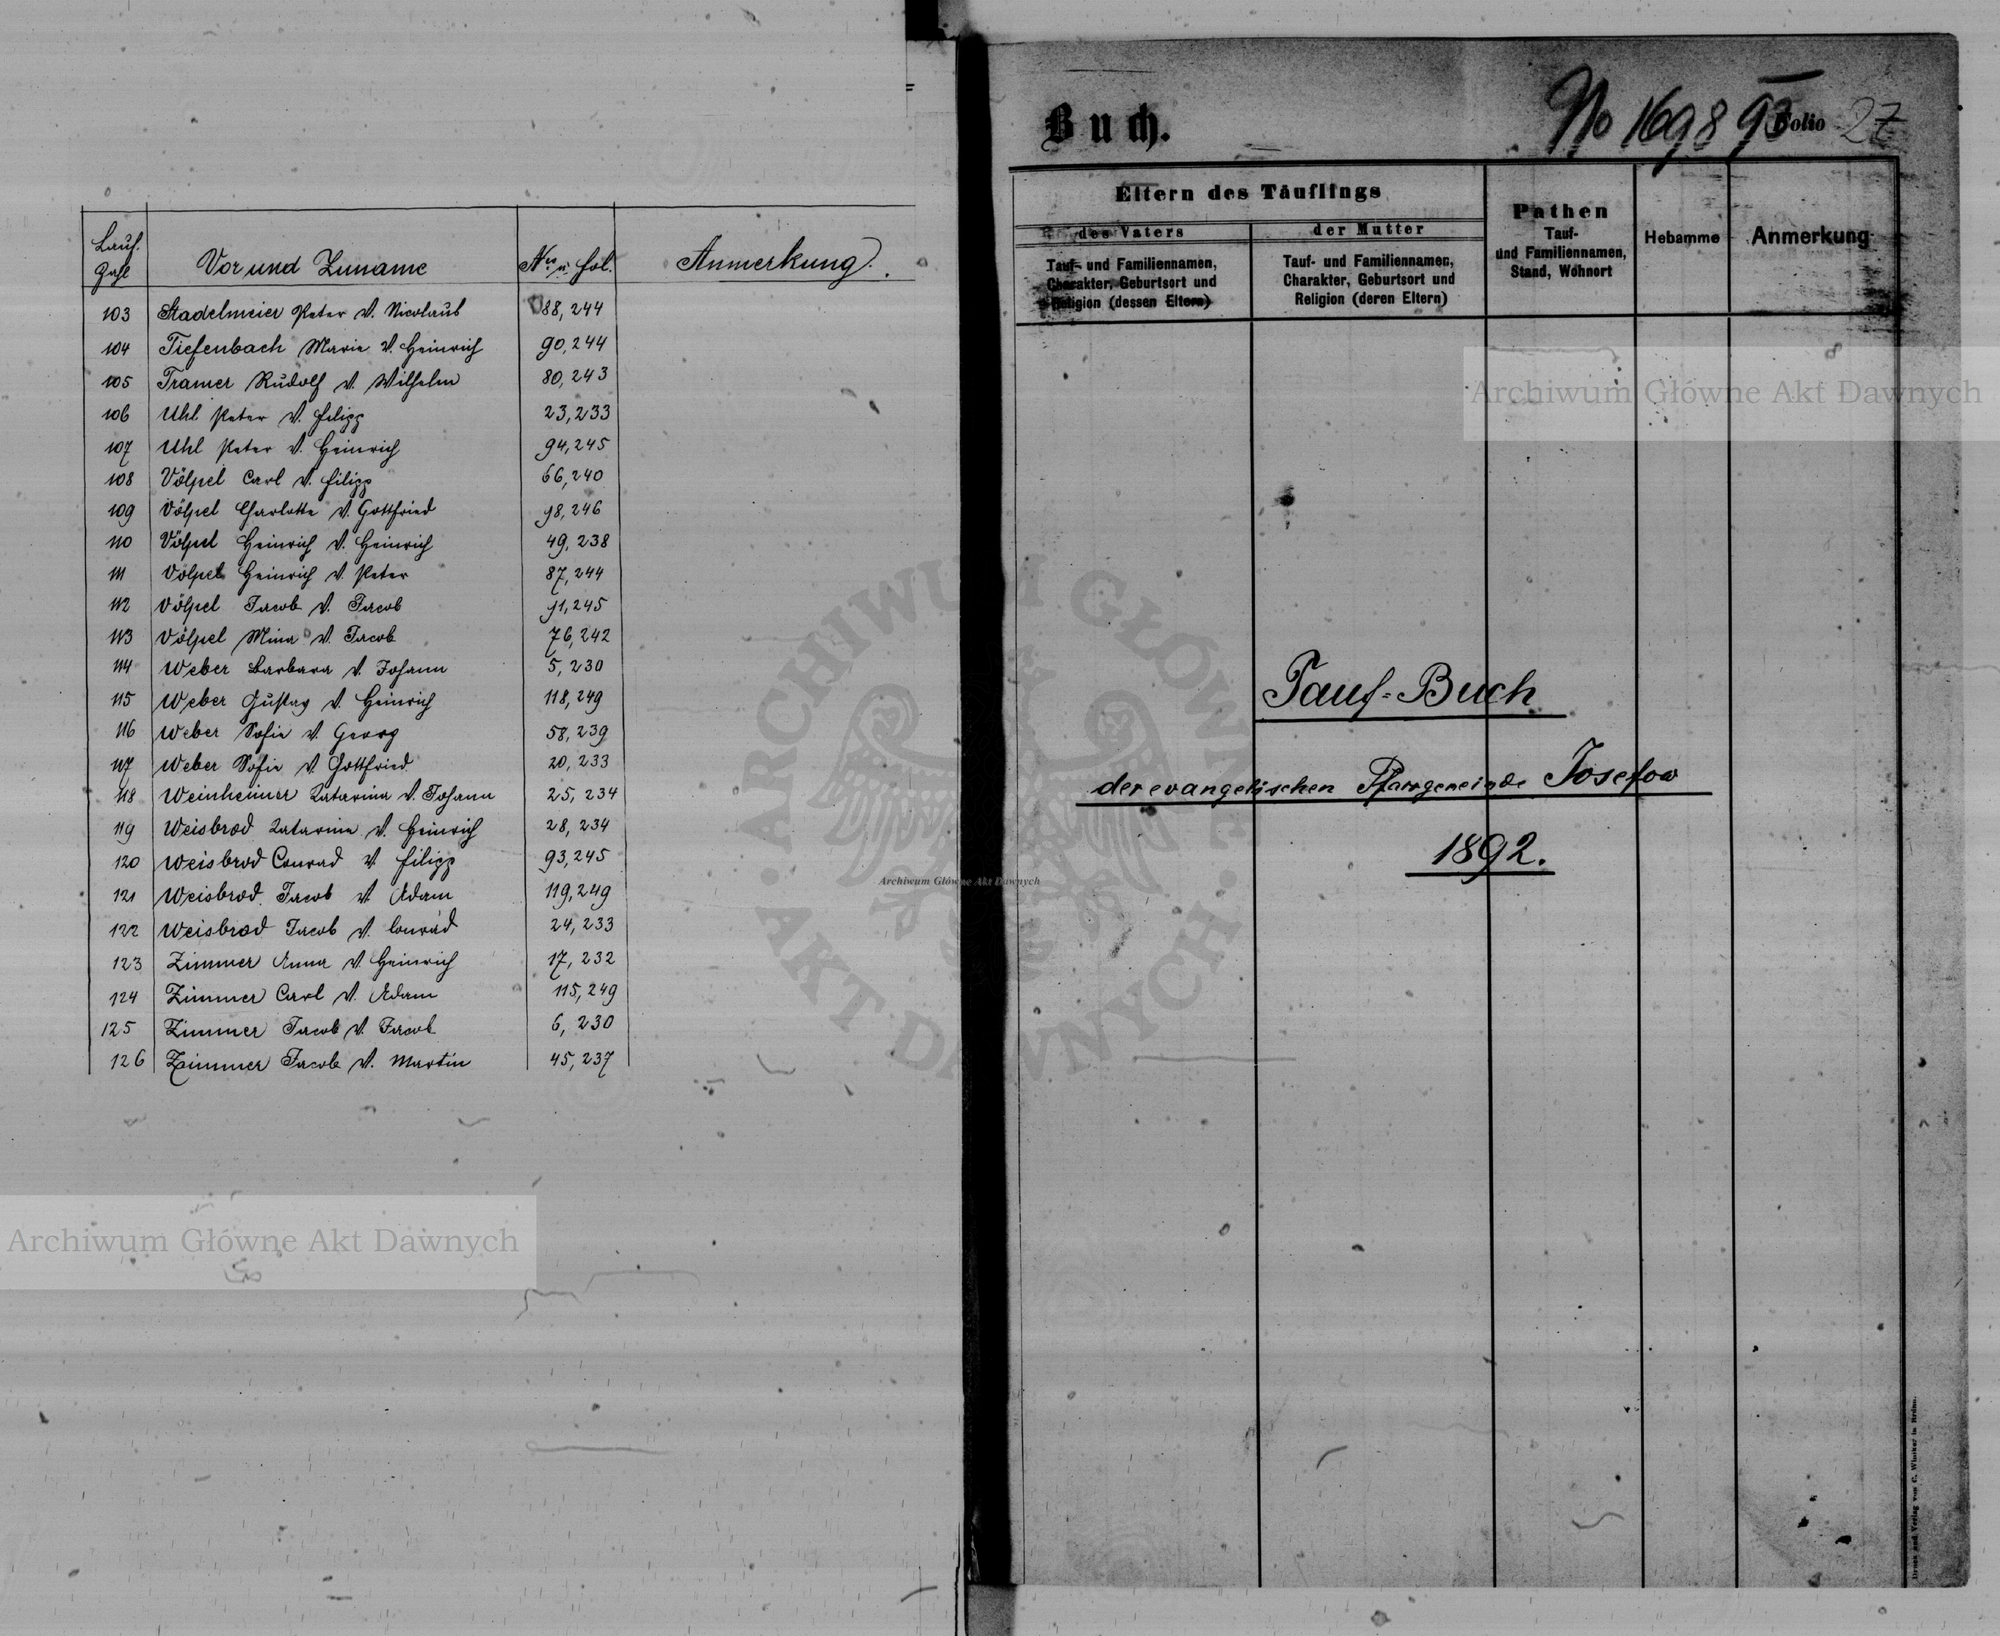 Lauf. Zahl
Vor und Zuname
Nro u. fol.
Anmerkung.
103 Stadelmeier Peter V. Nicolaus 88, 244
104 Tiefenbach Marie V. Heinrich 90, 244
105 Tramer Rudolf V. Wilhelm 80, 243
106 Uhl Peter V. Filipp 23, 233
107 Uhl Peter V. Heinrich 94, 245
108 Völpel Carl V. Filipp 66, 240
109 Völpel Charlotte V. Gottfried 98, 246
110 Völpel Heinrich V. Heinrich 49, 238
111 Völpel Heinrich V. Peter 87, 244
112 Völpel Jacob V. Jacob 91, 245
113 Völpel Mina V. Jacob 76, 242
114 Weber Barbara V. Johann 5, 230
115 Weber Gustav V. Heinrich 118, 249
116 Weber Sofie V. Georg 58, 239
117 Weber Sofie V. Gottfried 20, 233
118 Weinheimer Katarina V. Johann 25, 234
119 Weisbrod Katarina V. Heinrich 28, 234
120 Weisbrod Conrad V. Filipp 93, 245
121 Weisbrod Jacob V. Adam 119, 249
122 Weisbrod Jacob V. Conrad 24, 233
123 Zimmer Anna V. Heinrich 17, 232
124 Zimmer Carl V. Adam 115, 249
125 Zimmer Jacob V. Jacob 6, 230
126 Zimmer Jacob V. Martin 45, 237
Archiwum Główne Akt Dawnych
Buch.
No 1698 93
Folio 27
Eltern des Täuflings
des Vaters
der Mutter
Tauf- und Familiennamen,
Charakter, Geburtsort und
Religion (dessen Eltern)
Tauf- und Familiennamen,
Charakter, Geburtsort und
Religion (deren Eltern)
Pathen
Tauf-
und Familiennamen,
Stand, Wohnort
Hebamme
Anmerkung
Archiwum Główne Akt Dawnych
Tauf-Buch
der evangelischen Pfarrgemeinde Josefow
1892.
Archiwum Główne Akt Dawnych
ARCHIWUM GŁÓWNE
AKT DAWNYCH
Druck und Verlag von C. Winiker in Brünn.